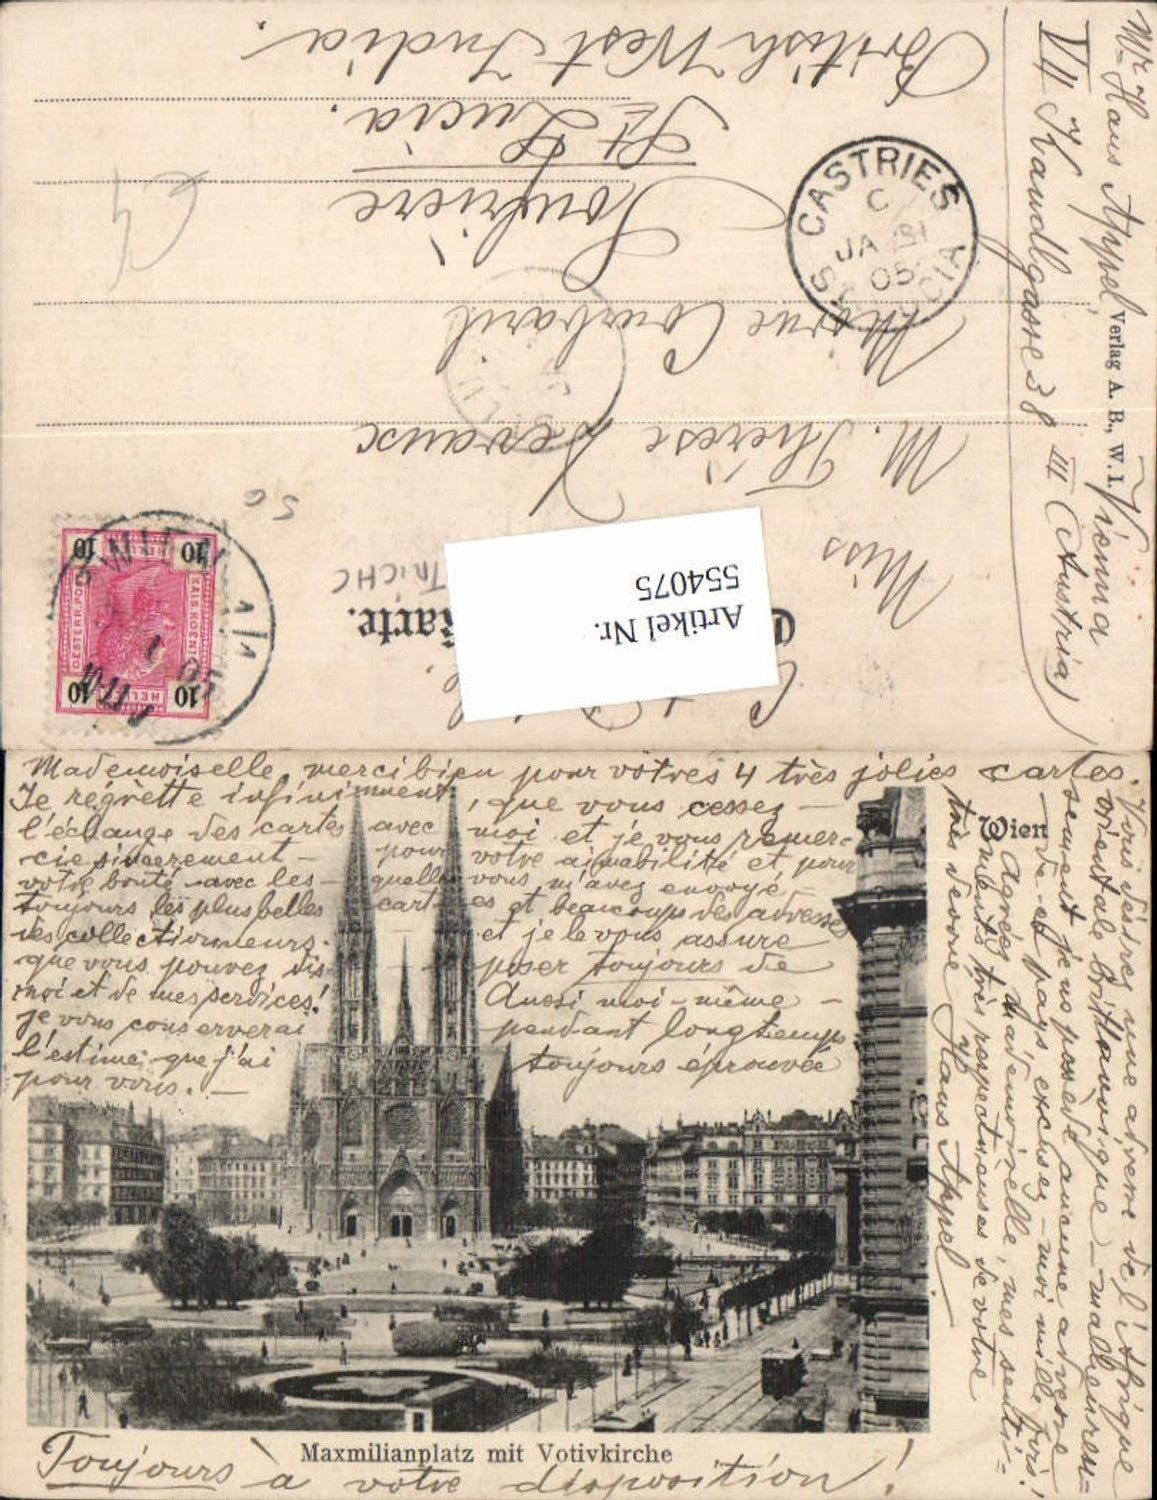 Mr Hans Appel, Vienna
VII Kandlgasse 38 III (Austria)
Verlag A. B., W. I.
Karte.
Artikel Nr.
554075
Miss
M. Thérèse Devaux
Morne Courbaril
Soufrière
St Lucia.
British West India.
CASTRIES
C
JA 31
05
ST LUCIA
WIEN
1/1
10 10
10 10
50
Mademoiselle, merci bien pour votres 4 très jolies cartes.
Je régrette infiniment, que vous cessez –
l'échange des cartes avec moi et je vous remer-
cie sincerement – pour votre aimabilité et pour
votre bonté avec les – quelles vous m'avez envoyé
toujours les plus belles cartes et beaucoup des adresses
des collectionneurs. et je le vous assure
que vous pouvez dis poser toujours de
moi et de mes services! Aussi moi-même –
je vous conserverai pendant longtemps
l'estime que j'ai toujours éprouvée
pour vous. –
Vous désirez une adresse de l'Afrique
orientale Brittannique – malheureu=
sement je ne possède aucune adresse
de ce pays excusez-moi mille fois!
Agréez Mademoiselle, mes senti=
ments très respectueuses de votre
très devoué Hans Appel
Wien
Maxmilianplatz mit Votivkirche
Toujours à votre disposition!